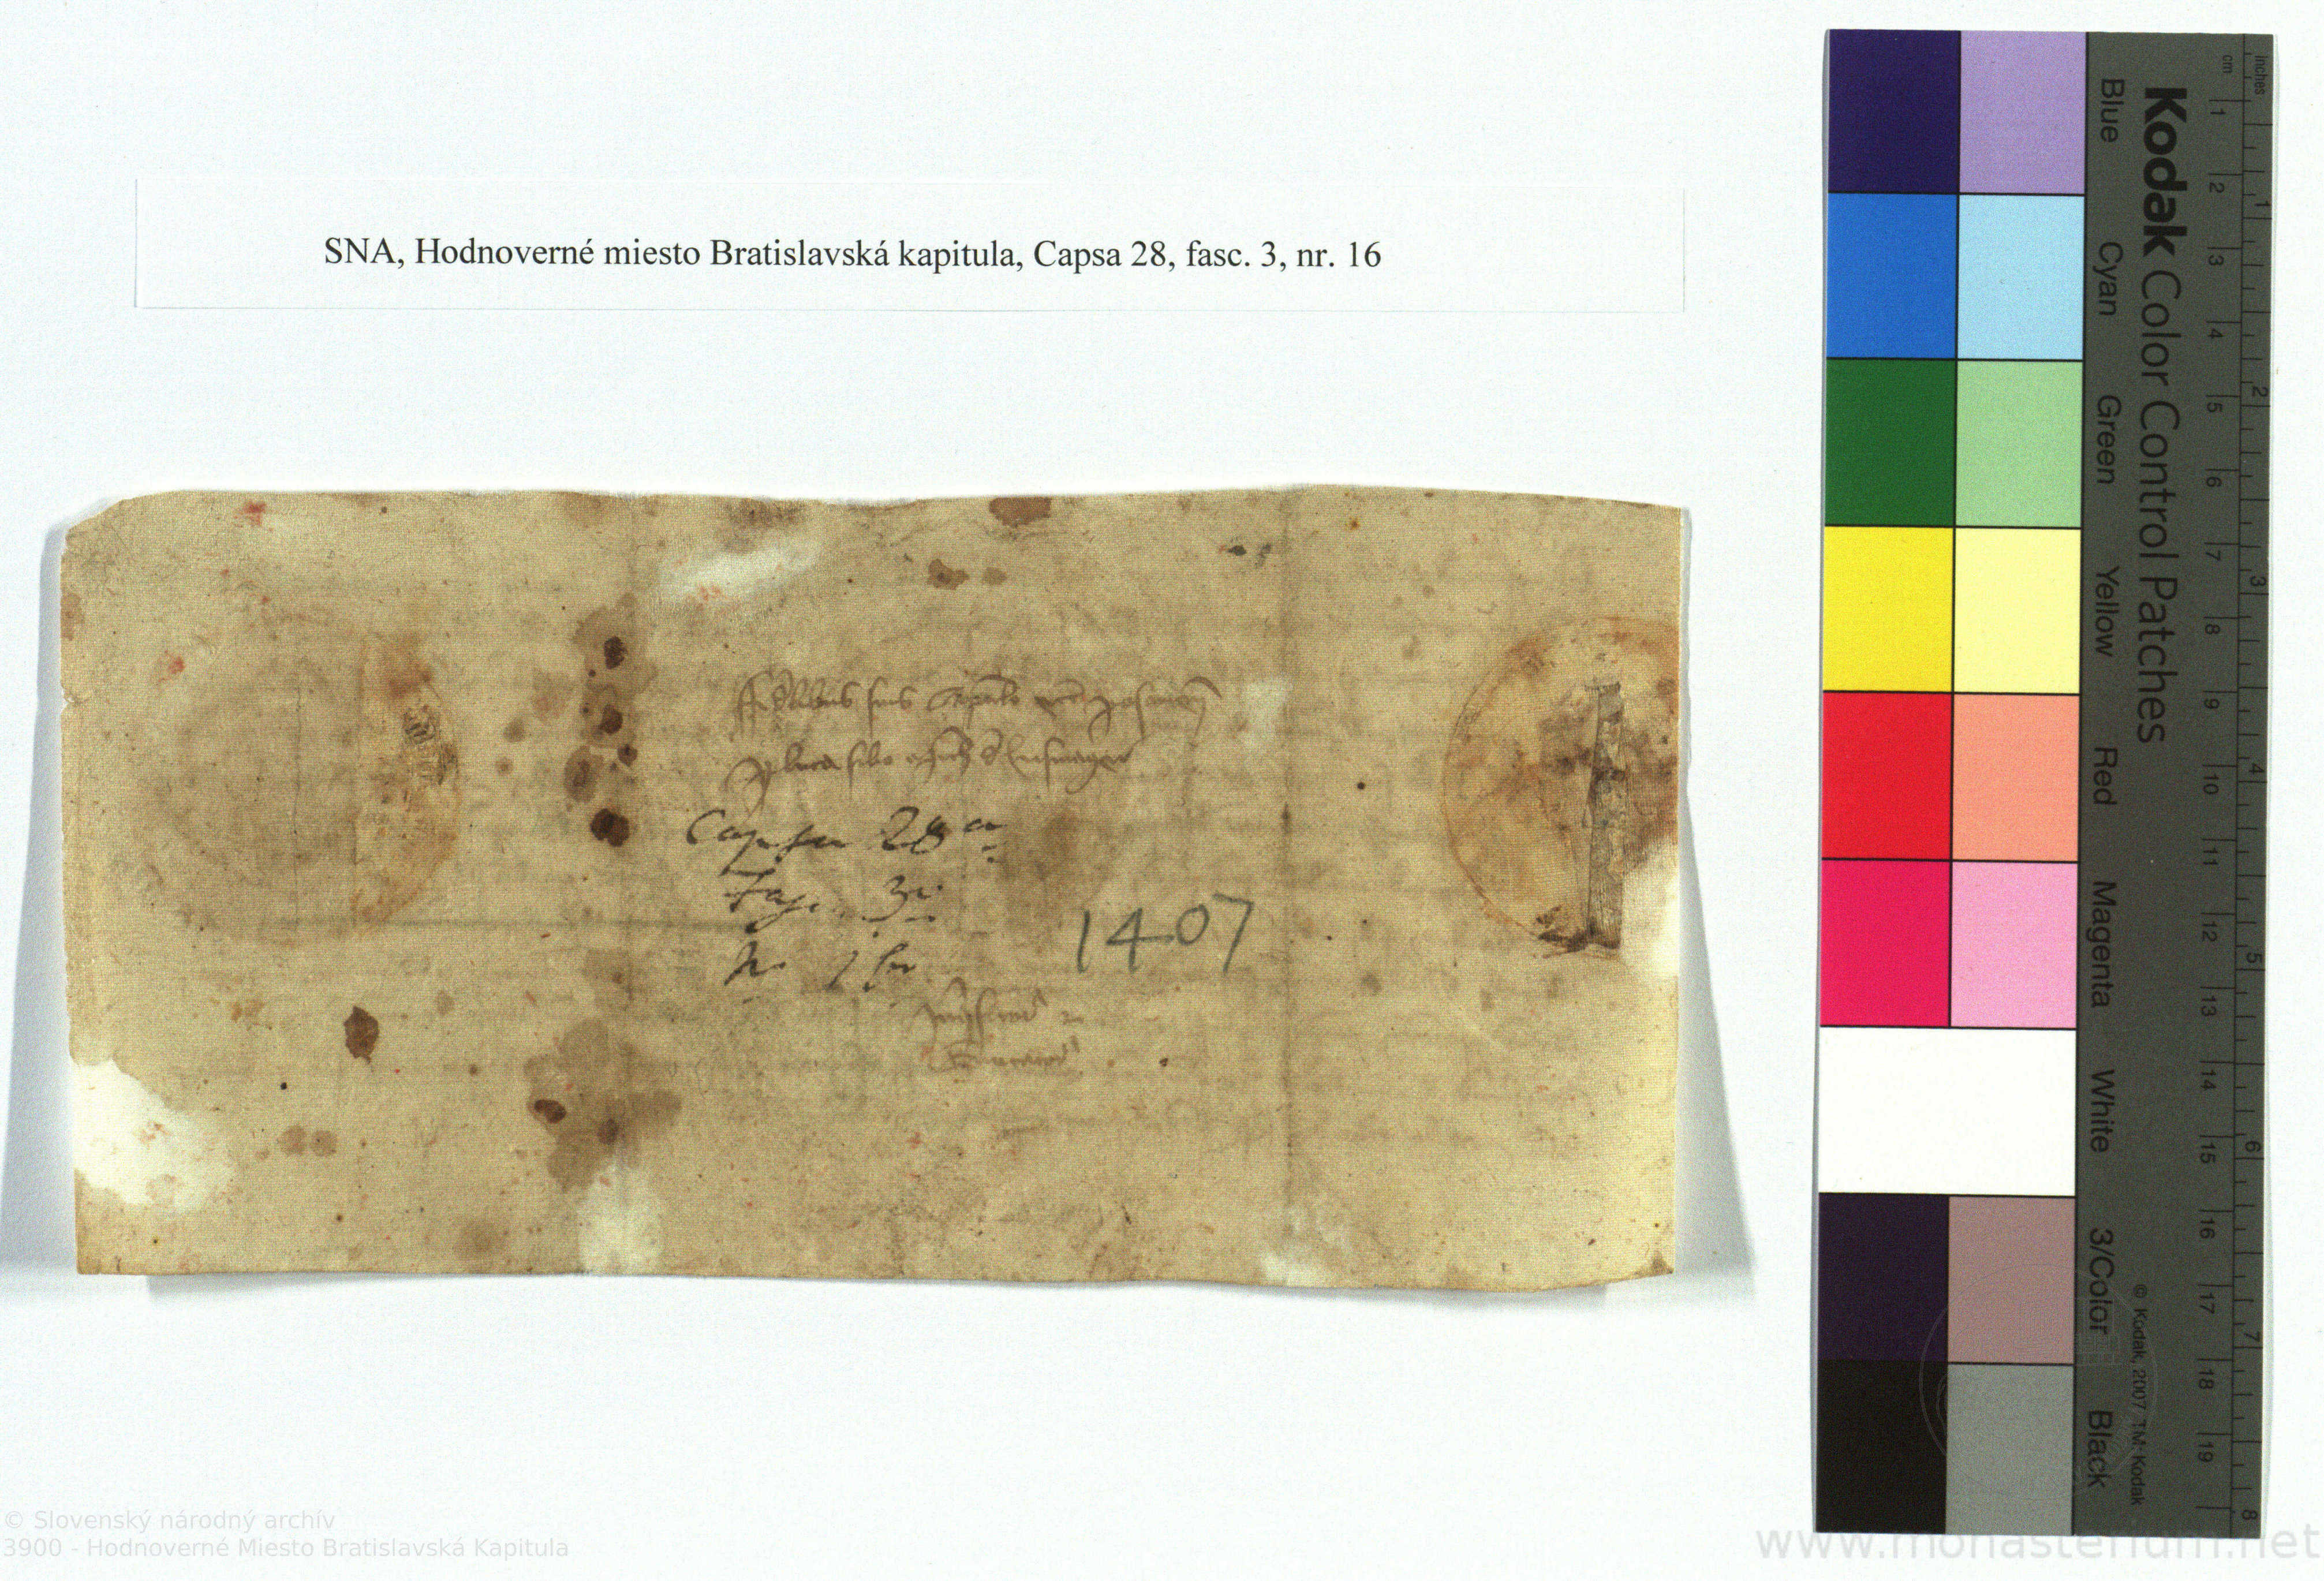 SNA, Hodnoverné miesto Bratislavská kapitula, Capsa 28, fasc. 3, nr. 16
ffidelibus suis
luca filio
Capsa 28a
Fasc. 3.
Nr 16
1407
Kodak Color Control Patches
Blue Cyan Green Yellow Red Magenta White 3/Color Black
© Kodak, 2007 TM: Kodak
inches 1 2 3 4 5 6 7 8
cm 1 2 3 4 5 6 7 8 9 10 11 12 13 14 15 16 17 18 19
© Slovenský národný archív
3900 - Hodnoverné Miesto Bratislavská Kapitula
www.monasterium.net